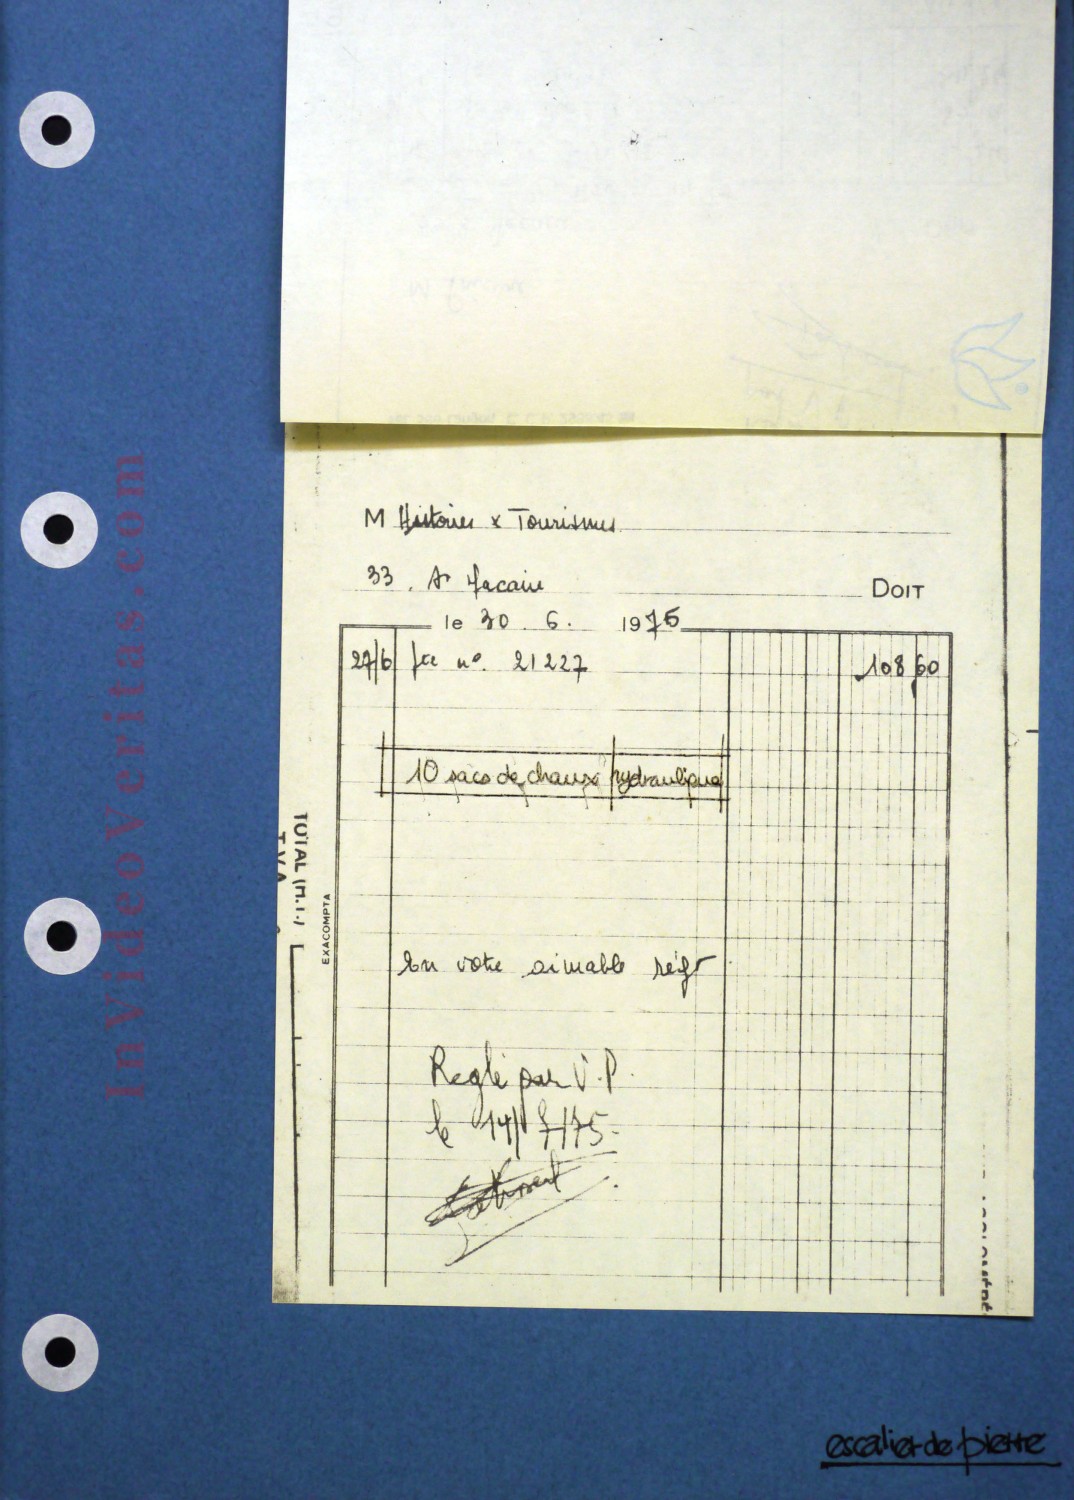 M Histoires & Tourismes
33. St Macaire
DOIT
le 30. 6. 1975
27/6 fre n°. 21227 108,60
10 sacs de chaux hydraulique
En votre aimable régt
Reglé par V.P.
le 14/7/75-
EXACOMPTA
TOTAL (H.T.)
T.V.A
InVideoVeritas.com
escalier de pierre